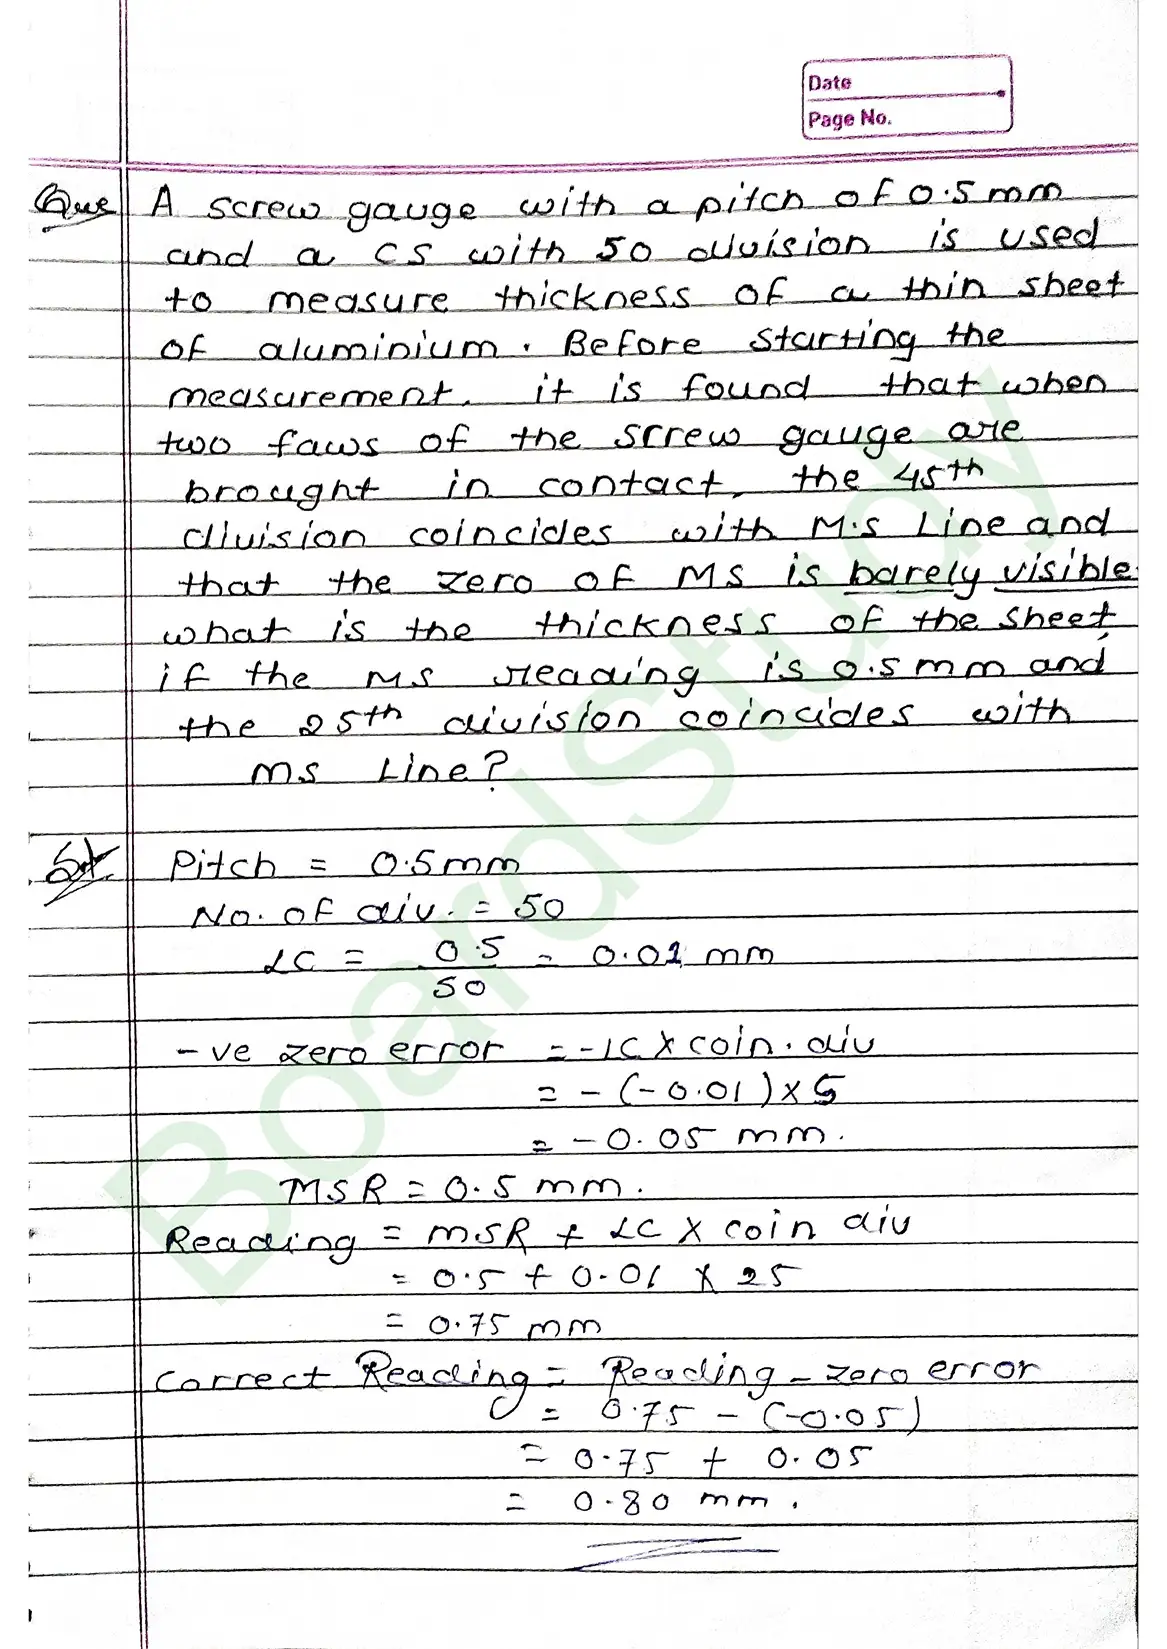 Date
Page No.
Que A screw gauge with a pitch of 0.5 mm
and a CS with 50 division is used
to measure thickness of a thin sheet
of aluminium. Before starting the
measurement, it is found that when
two faws of the screw gauge are
brought in contact, the 45th
division coincides with M.s Line and
that the zero of MS is barely visible.
what is the thickness of the sheet,
if the MS reading is 0.5 mm and
the 25th division coincides with
ms Line?
Sol. Pitch = 0.5mm
No. of div. = 50
LC = 0.5/50 = 0.01 mm
-ve zero error = -LC X coin. div
= -(-0.01) x 5
= -0.05 mm.
MSR = 0.5 mm.
Reading = MSR + LC X coin div
= 0.5 + 0.01 X 25
= 0.75 mm
correct Reading = Reading - zero error
= 0.75 - (-0.05)
= 0.75 + 0.05
= 0.80 mm.
BoardStudy